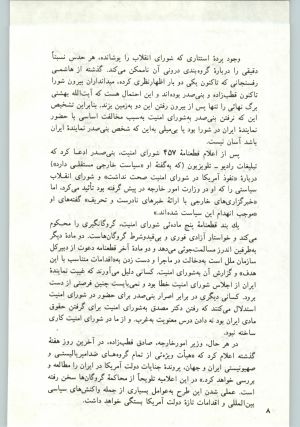 وجود پردهٔ استتاری که شورای انقلاب را پوشانده، هر حدس نسبتاً
دقیقی را دربارهٔ گروه‌بندی درونی آن ناممکن می‌کند. گذشته از هاشمی
رفسنجانی که تاکنون یکی دو بار اظهارنظری کرده، میدانداران بیرون شورا
تاکنون قطب‌زاده و بنی‌صدر بوده‌اند و این احتمال هست که آیت‌الله بهشتی
برگ نهائی را تنها پس از بیرون رفتن این دو به‌زمین بزند. بنابراین تشخیص
این که نرفتن بنی‌صدر به‌شورای امنیت به‌سبب مخالفت اساسی با حضور
نمایندهٔ ایران در شورا بود یا بی‌میلی به‌این که شخص بنی‌صدر نمایندهٔ ایران
باشد آسان نیست.
پس از اعلام قطعنامهٔ ۴۵۷ شورای امنیت، بنی‌صدر ادعا کرد که
تبلیغات رادیو ـ تلویزیون (که به‌گفتهٔ او «سیاست خارجی مستقلی دارد»)
دربارهٔ «نفوذ آمریکا در شورای امنیت صحت نداشت» و شورای انقلاب
سیاستی را که او در وزارت امور خارجه در پیش گرفته بود تأئید می‌کرد، اما
«خبرگزاری‌های خارجی با ارائهٔ خبرهای نادرست و تحریف» گفته‌های او
«موجب انهدام این سیاست شده‌اند.»
یك بند قطعنامهٔ پنج ماده‌ئی شورای امنیت، گروگانگیری را محکوم
می‌کند و خواستار آزادی فوری و بی‌قیدوشرط گروگان‌هاست. دو مادهٔ دیگر
به‌طرفین اندرز مسالمت‌جوئی می‌دهد، و دو مادهٔ آخر قطعنامه دعوت از دبیرکل
سازمان ملل است به‌دخالت در ماجرا و دست زدن به‌«اقدامات متناسب با این
هدف» و گزارش آن به‌شورای امنیت. کسانی دلیل می‌آورند که غیبت نمایندهٔ
ایران از اجلاس شورای امنیت خطا بود و نمی‌بایست چنین فرصتی از دست
برود. کسانی دیگری در برابر اصرار بنی‌صدر برای حضور در شورای امنیت
استدلال می‌کنند که رفتن دکتر مصدق به‌شورای امنیت برای گرفتن حقوق
مادی ایران بود نه دادن درس معنویت به‌غرب. و از ما در شورای امنیت کاری
ساخته نبود.
در هر حال، وزیر امورخارجه، صادق قطب‌زاده، در آخرین روز هفتهٔ
گذشته اعلام کرد که «هیأت ویژه‌ئی از تمام گروه‌های ضدامپریالیستی و
صهیونیستی ایران و جهان، پروندهٔ جنایات دولت آمریکا در ایران را مطالعه و
بررسی خواهد کرد.» در این اعلامیه تلویحاً از محاکمهٔ گروگان‌ها سخن رفته
است. عملی شدن این طرح به‌عوامل بسیاری از جمله واکنش‌های سیاسی
بین‌المللی و اقدامات تازهٔ دولت آمریکا بستگی خواهد داشت.
۸